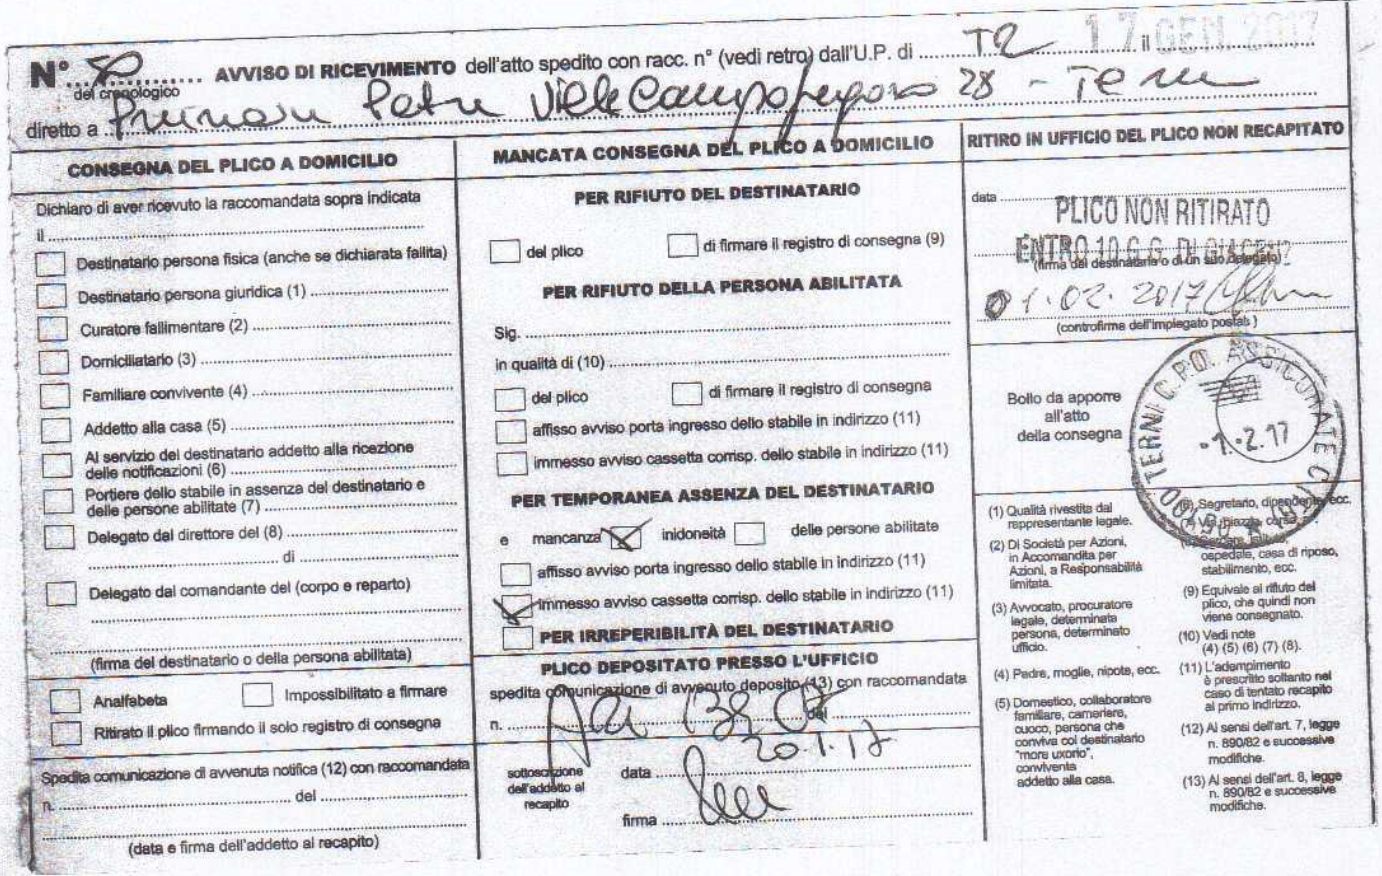 N° 50 AVVISO DI RICEVIMENTO dell'atto spedito con racc. n° (vedi retro) dall'U.P. di TR 17 GEN. 2017 il
del cronologico
diretto a Petru Viale Campofregoso 28 - Terni
CONSEGNA DEL PLICO A DOMICILIO
Dichiaro di aver ricevuto la raccomandata sopra indicata
il
Destinatario persona fisica (anche se dichiarata fallita)
Destinatario persona giuridica (1)
Curatore fallimentare (2)
Domiciliatario (3)
Familiare convivente (4)
Addetto alla casa (5)
Al servizio del destinatario addetto alla ricezione
delle notificazioni (6)
Portiere dello stabile in assenza del destinatario e
delle persone abilitate (7)
Delegato dal direttore del (8)
di
Delegato dal comandante del (corpo e reparto)
(firma del destinatario o della persona abilitata)
Analfabeta
Impossibilitato a firmare
Ritirato il plico firmando il solo registro di consegna
Spedita comunicazione di avvenuta notifica (12) con raccomandata
n. del
(data e firma dell'addetto al recapito)
MANCATA CONSEGNA DEL PLICO A DOMICILIO
PER RIFIUTO DEL DESTINATARIO
del plico
di firmare il registro di consegna (9)
PER RIFIUTO DELLA PERSONA ABILITATA
Sig.
in qualità di (10)
del plico
di firmare il registro di consegna
affisso avviso porta ingresso dello stabile in indirizzo (11)
immesso avviso cassetta corrisp. dello stabile in indirizzo (11)
PER TEMPORANEA ASSENZA DEL DESTINATARIO
e mancanza inidoneità delle persone abilitate
affisso avviso porta ingresso dello stabile in indirizzo (11)
immesso avviso cassetta corrisp. dello stabile in indirizzo (11)
PER IRREPERIBILITÀ DEL DESTINATARIO
PLICO DEPOSITATO PRESSO L'UFFICIO
spedita comunicazione di avvenuto deposito (13) con raccomandata
n. del
sottoscrizione
dell'addetto al
recapito
data 20.1.17
firma
RITIRO IN UFFICIO DEL PLICO NON RECAPITATO
data
PLICO NON RITIRATO
ENTRO 10 G.G. DI GIACENZ
(firma del destinatario o di un suo delegato)
01.02.2017
(controfirma dell'impiegato postale)
Bollo da apporre
all'atto
della consegna
TERNI C.P.O. ASSICURATE
-1.-2.17
(1) Qualità rivestita dal
rappresentante legale.
(2) Di Società per Azioni,
in Accomandita per
Azioni, a Responsabilità
limitata.
(3) Avvocato, procuratore
legale, determinata
persona, determinato
ufficio.
(4) Padre, moglie, nipote, ecc.
(5) Domestico, collaboratore
familiare, cameriere,
cuoco, persona che
conviva col destinatario
"more uxorio",
convivente
addetto alla casa.
(6) Segretario, dipendente, ecc.
(7) Via, piazza, corso,
ospedale, casa di riposo,
stabilimento, ecc.
(9) Equivale al rifiuto del
plico, che quindi non
viene consegnato.
(10) Vedi note
(4) (5) (6) (7) (8).
(11) L'adempimento
è prescritto soltanto nel
caso di tentato recapito
al primo indirizzo.
(12) Ai sensi dell'art. 7, legge
n. 890/82 e successive
modifiche.
(13) Ai sensi dell'art. 8, legge
n. 890/82 e successive
modifiche.